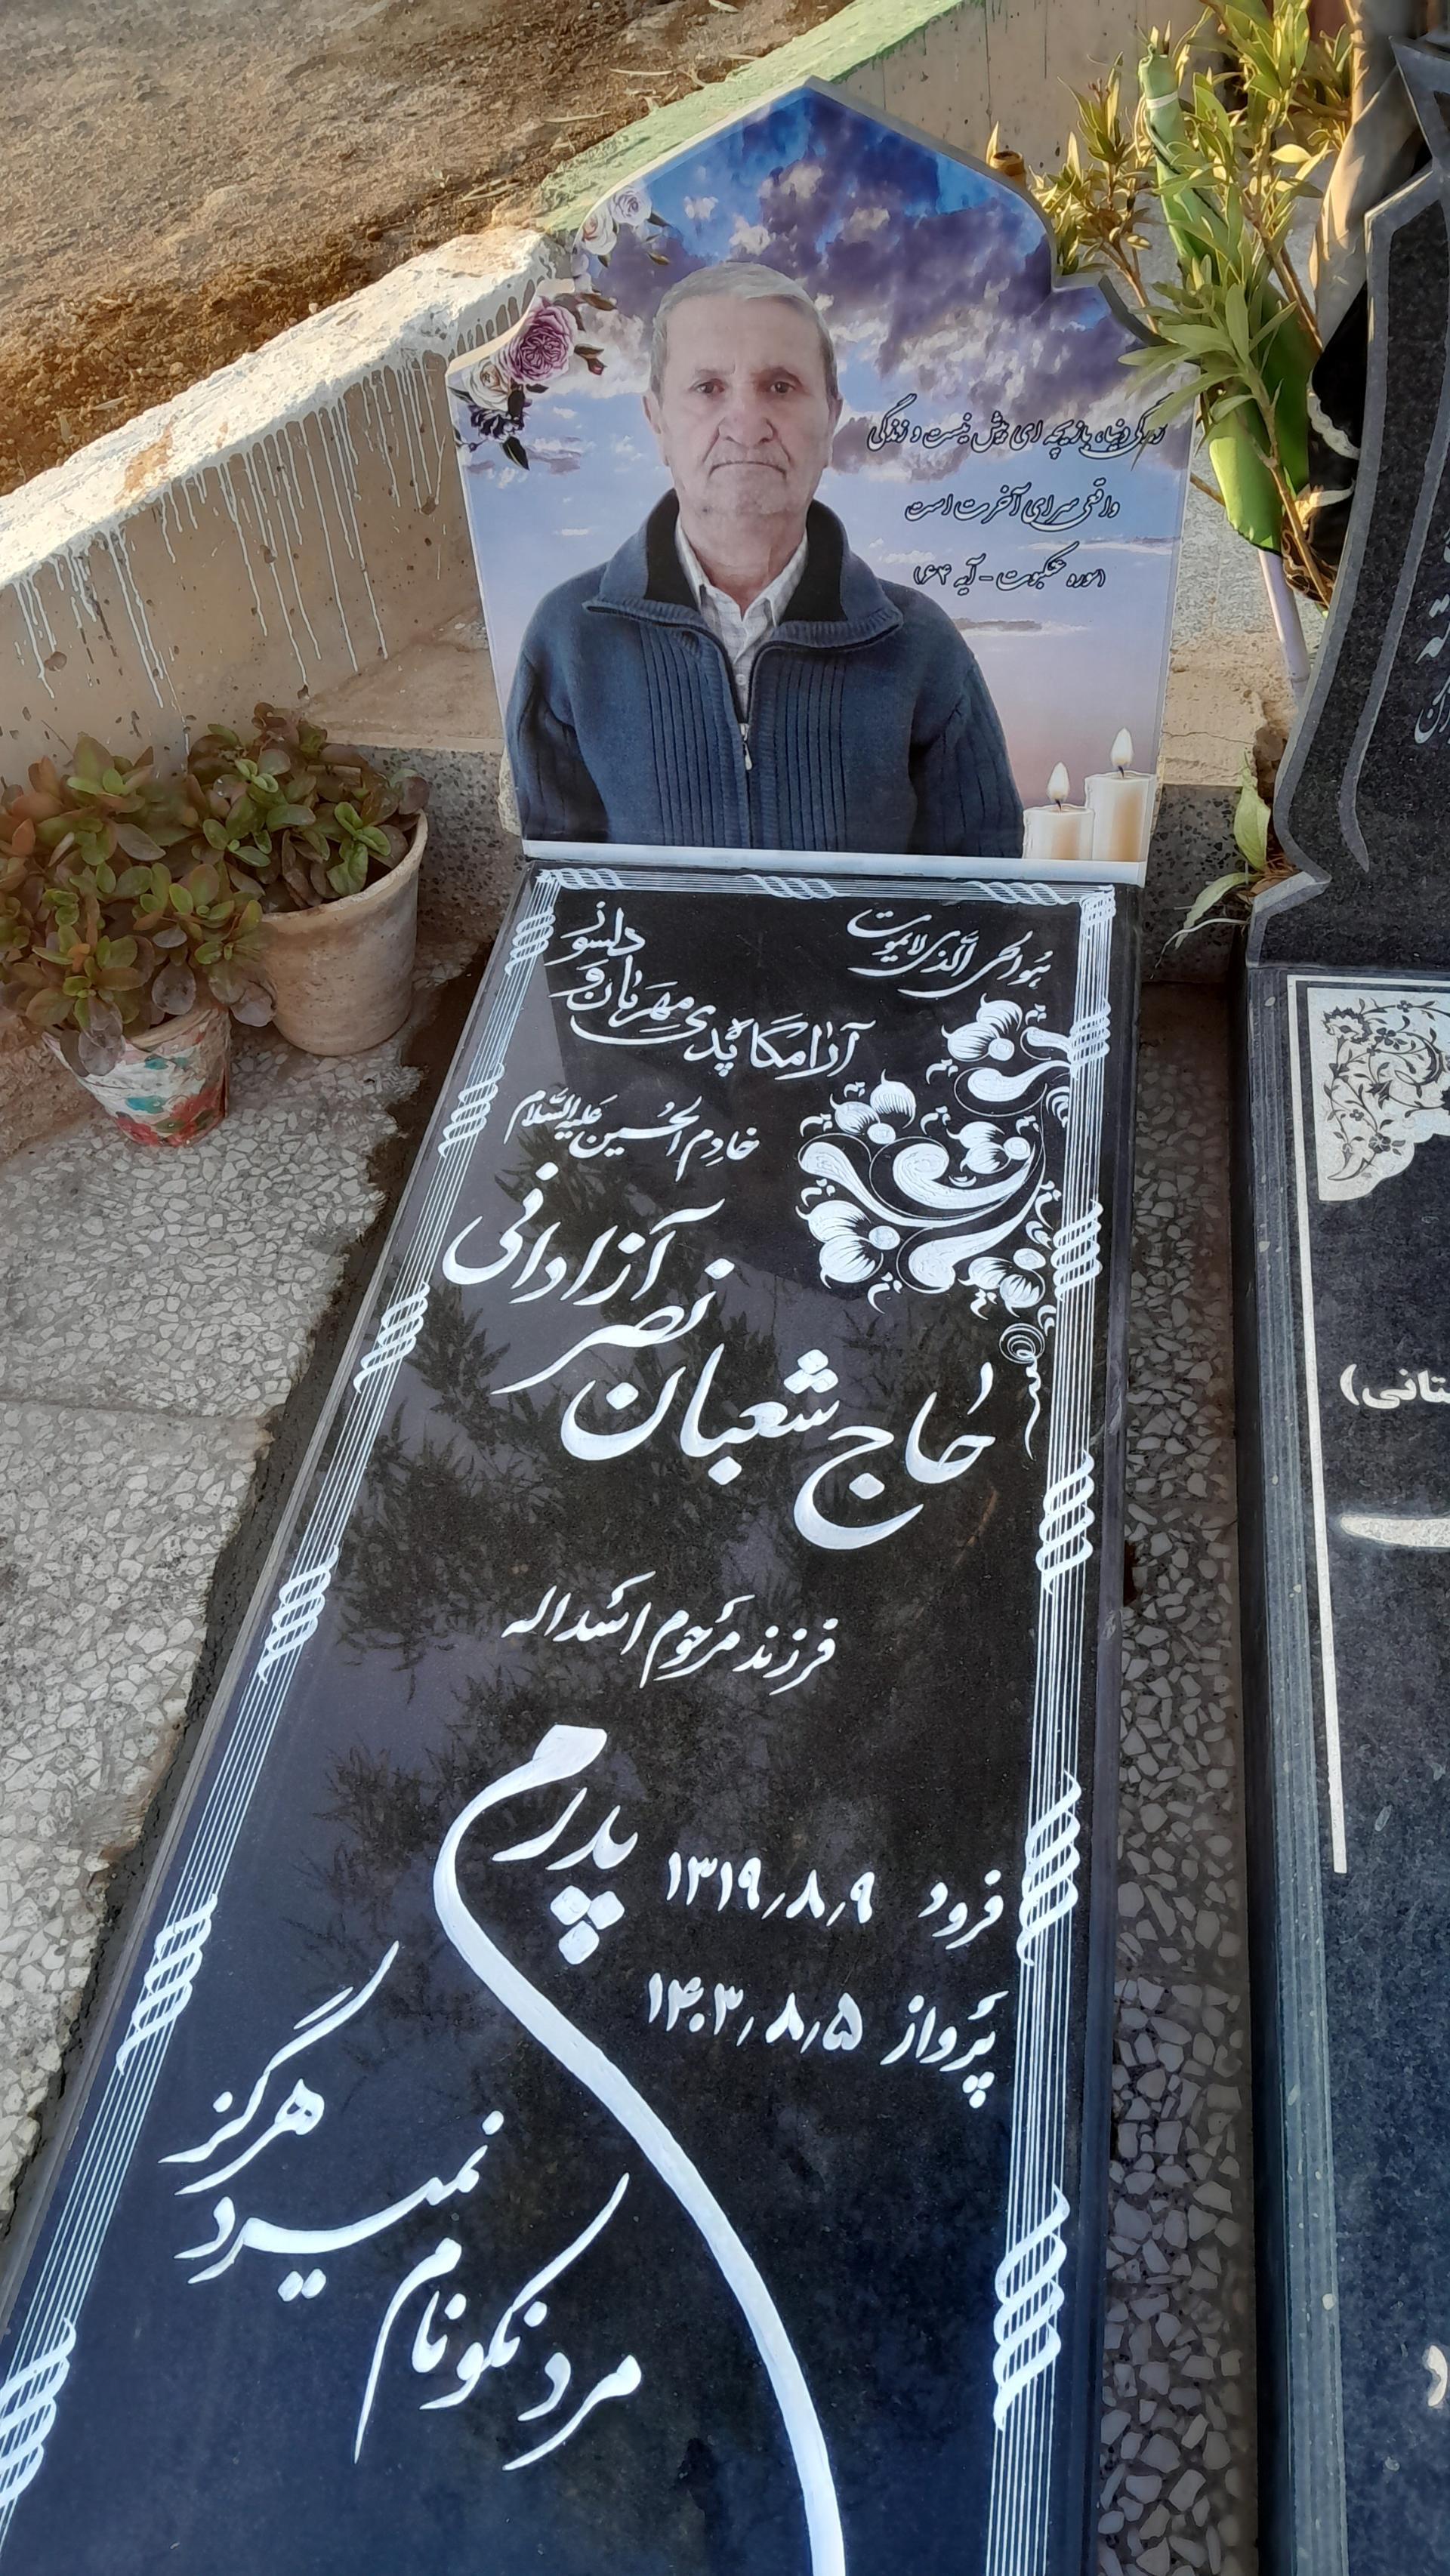 زندگی دنیا، بازیچه ای بیش نیست و زندگی
واقعی سرای آخرت است
(سوره عنکبوت - آیه ۶۴)
هوالحی الذی لایموت
آرامگاه پدری مهربان و دلسوز
خادم الحسین علیه السلام
حاج شعبان نصر آزادانی
فرزند مرحوم اسداله
فرود ۱۳۱۹٫۸٫۹
پرواز ۱۴۰۳٫۸٫۵
پدرم
مرد نکونام نمیرد هرگز
ستانی)